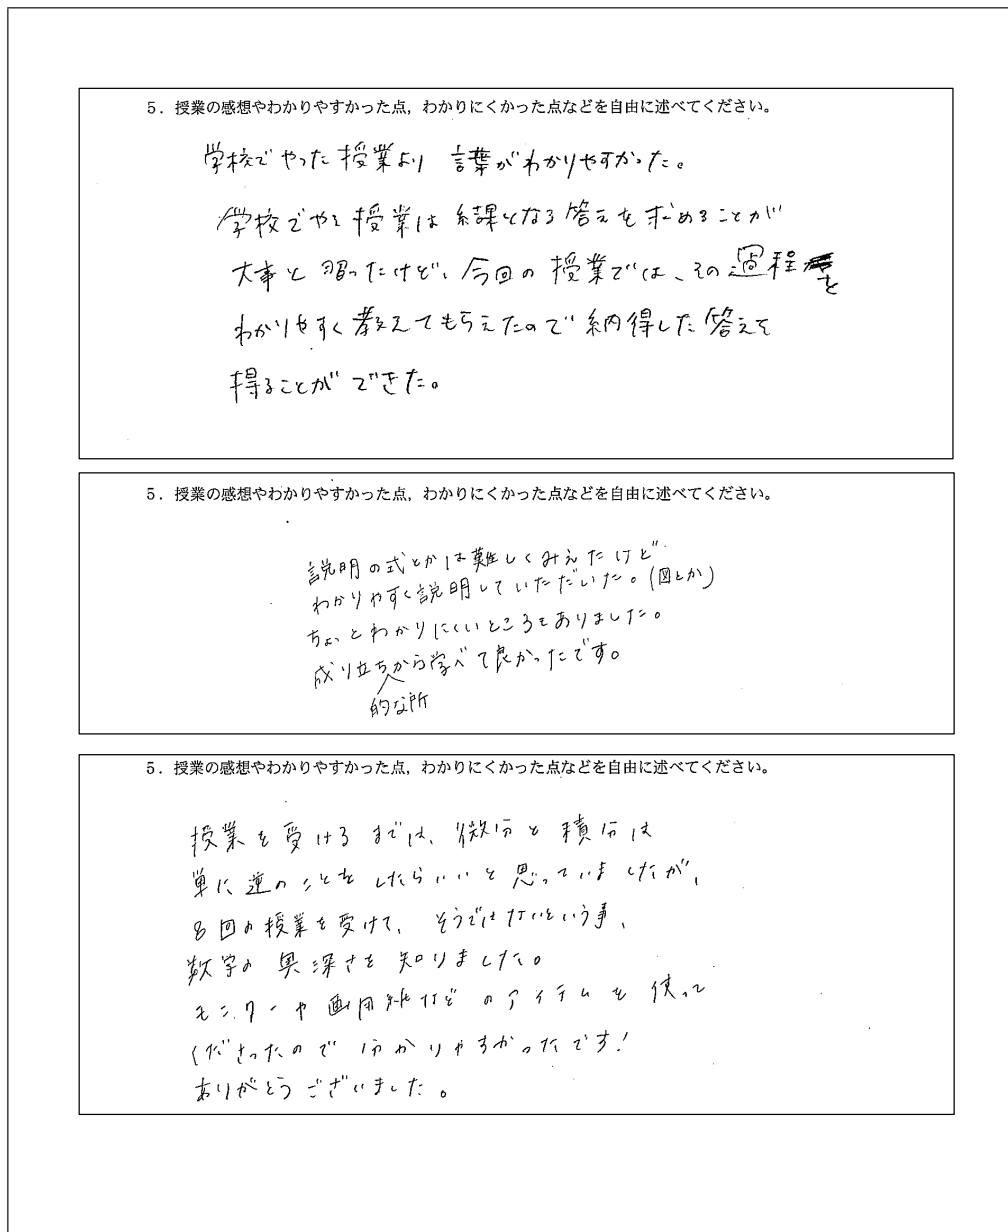 5．授業の感想やわかりやすかった点，わかりにくかった点などを自由に述べてください。
学校でやった授業より 言葉がわかりやすかった。
学校でやる授業は結課となる答えを求めることが
大事と習ったけど、今回の授業では、その過程を
わかりやすく教えてもらえたので納得した答えを
得ることができた。
5．授業の感想やわかりやすかった点，わかりにくかった点などを自由に述べてください。
説明の式とかは難しくみえたけど
わかりやすく説明していただいた。(図とか)
ちょっとわかりにくいところもありました。
成り立ちから学べて良かったです。
的な所
5．授業の感想やわかりやすかった点，わかりにくかった点などを自由に述べてください。
授業を受けるまでは、微分と積分は
単に逆のことをしたらいいと思っていましたが、
8回の授業を受けて、そうではないという事、
数学の奥深さを知りました。
モニターや画用紙などのアイテムを使って
くださったので分かりやすかったです!
ありがとうございました。